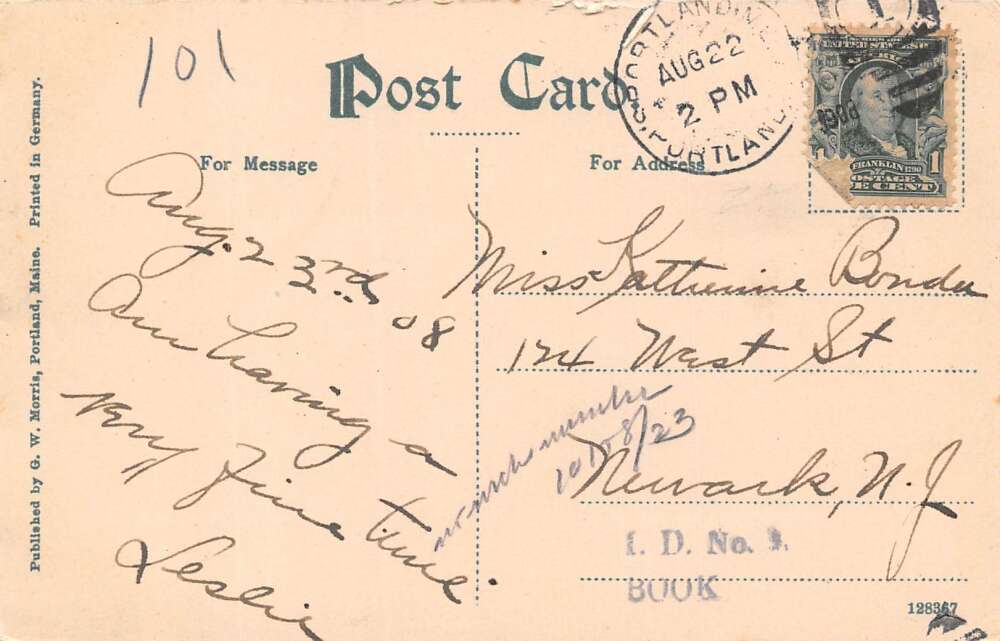 101
Post Card
For Message
For Address
PORTLAND
AUG 22
2 PM
PORTLAND
1
UNITED STATES
1908
FRANKLIN 1790
POSTAGE
1
CENT
Aug. 23rd
08
Am having a
very fine
time.
Leslie
Miss Katherine Bonder
174 West St
Newark, N.J
number
08/23
I. D. No. 9.
BOOK
128367
Published by G. W. Morris, Portland, Maine. Printed in Germany.